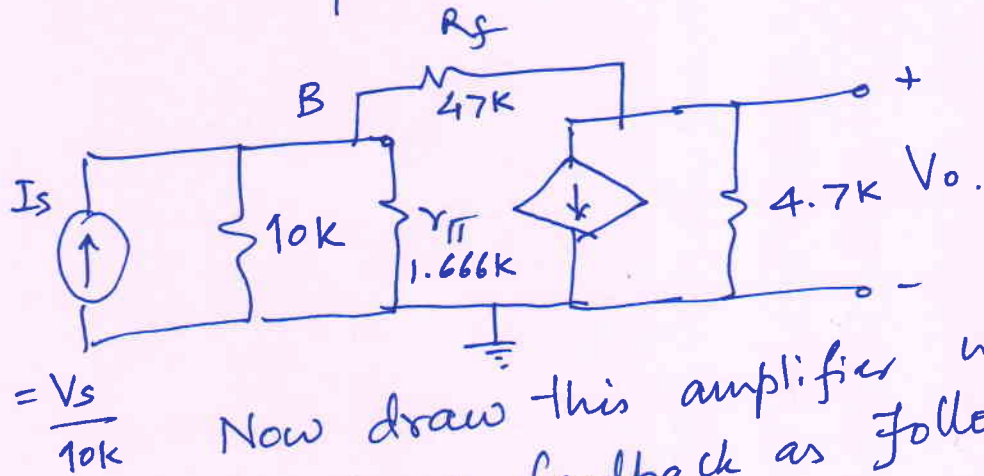 Rf
B
47K
+
Is
10K
rπ
1.666K
4.7K
Vo.
-
= Vs
10k
Now draw this amplifier
feedback as